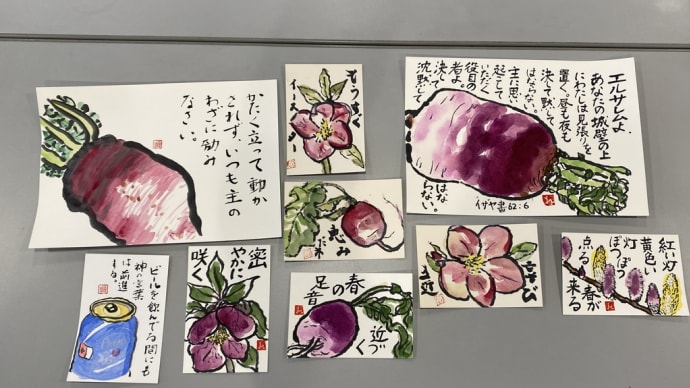 かたく立って動か
されず、いつも主の
わざに励み
なさい。
もうすぐ
イースター
エルサレムよ、
あなたの城壁の上
にわたしは見張りを
置く。昼も夜も
決して黙して
はならない。
主に思い
起こして
いただく
役目の
者よ
決して
沈黙して
はな
らない。
イザヤ書62:6
恵み
ビールを飲んでる間にも
神の言葉
は前進
する。
密
やかに
咲く
春の
足音
近づく
喜び
紅い灯
黄色い
灯
ぽつぽつ
点る
春が
来る